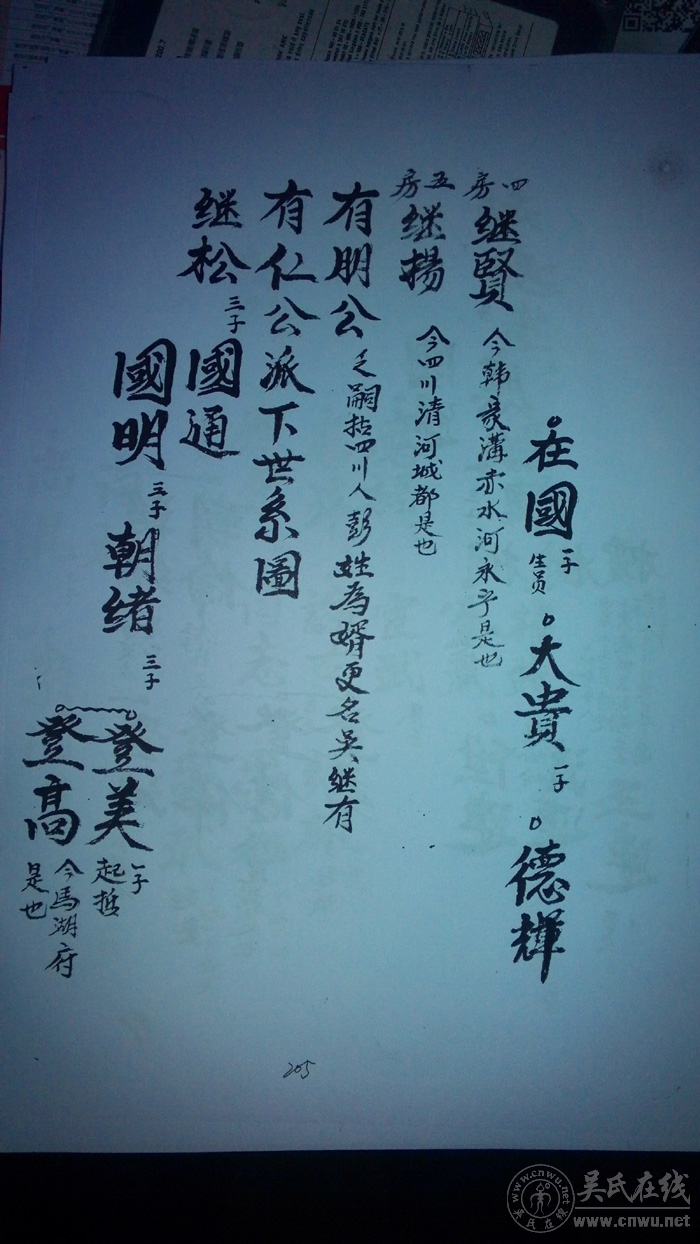 在國 一子 生员 大貴 一子 德輝
四房 继賢 今韩家溝赤水河永宁是也
五房 继揚 今四川清河城都是也
有朋公 乏嗣括四川人彭姓為婿更名吴继有
有仁公派下世系圖
继松 三子 國通
國明 三子 朝绪 三子 登美 一子 起哲
登高 今馬湖府是也
205
吴氏在线
www.cnwu.net